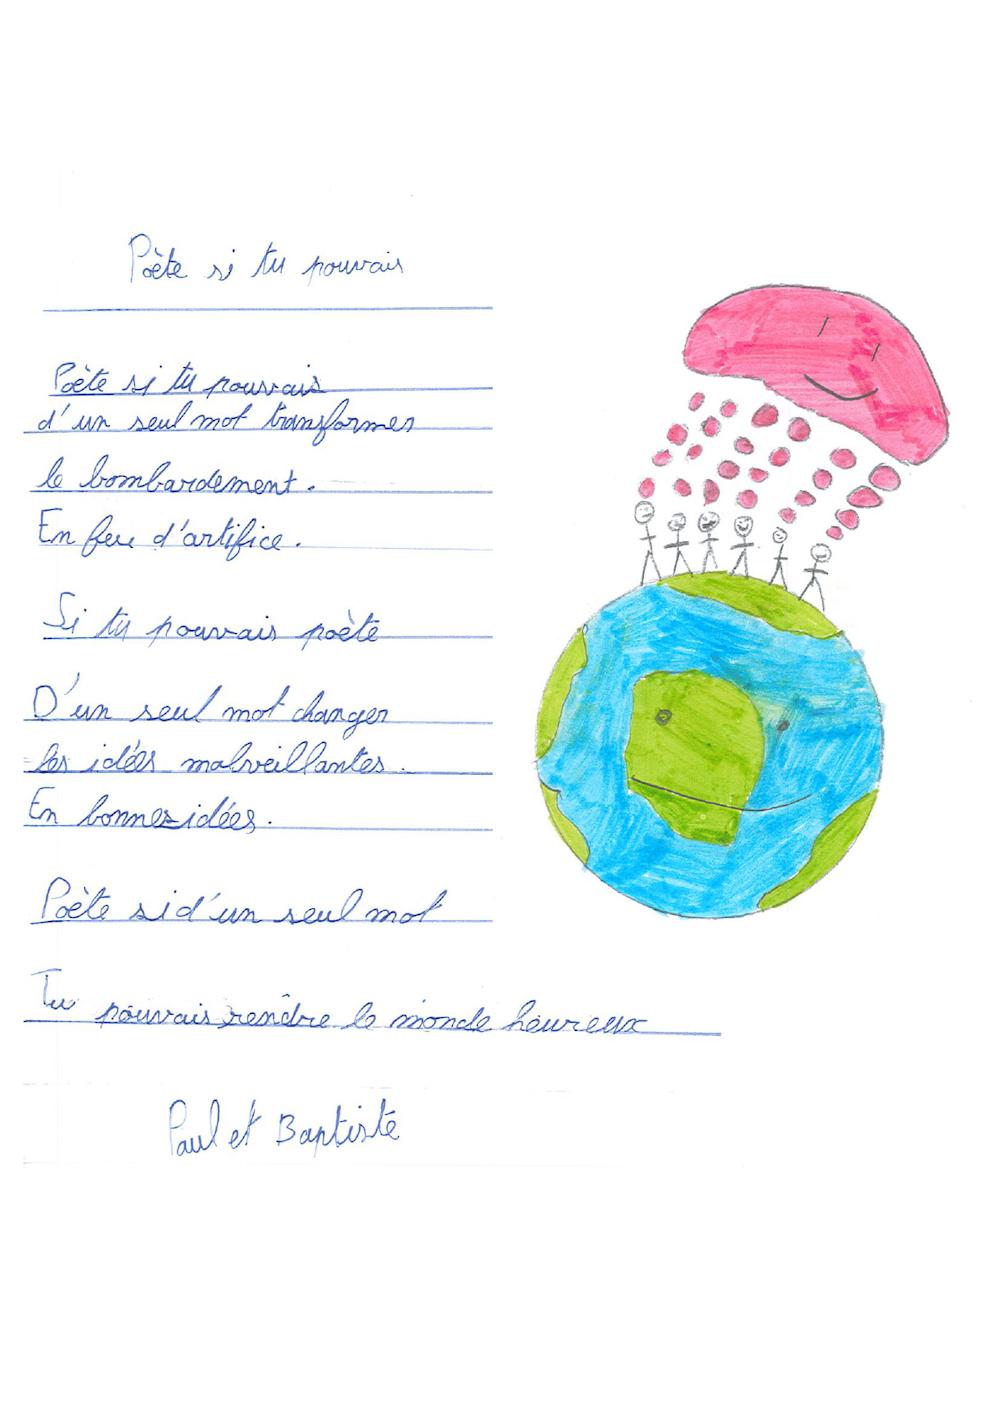 Poète si tu pouvais
Poète si tu pouvais
d'un seul mot transformer
le bombardement.
En feu d'artifice.
Si tu pouvais poète
D'un seul mot changer
les idées malveillantes.
En bonnes idées.
Poète si d'un seul mot
Tu pouvais rendre le monde heureux
Paul et Baptiste